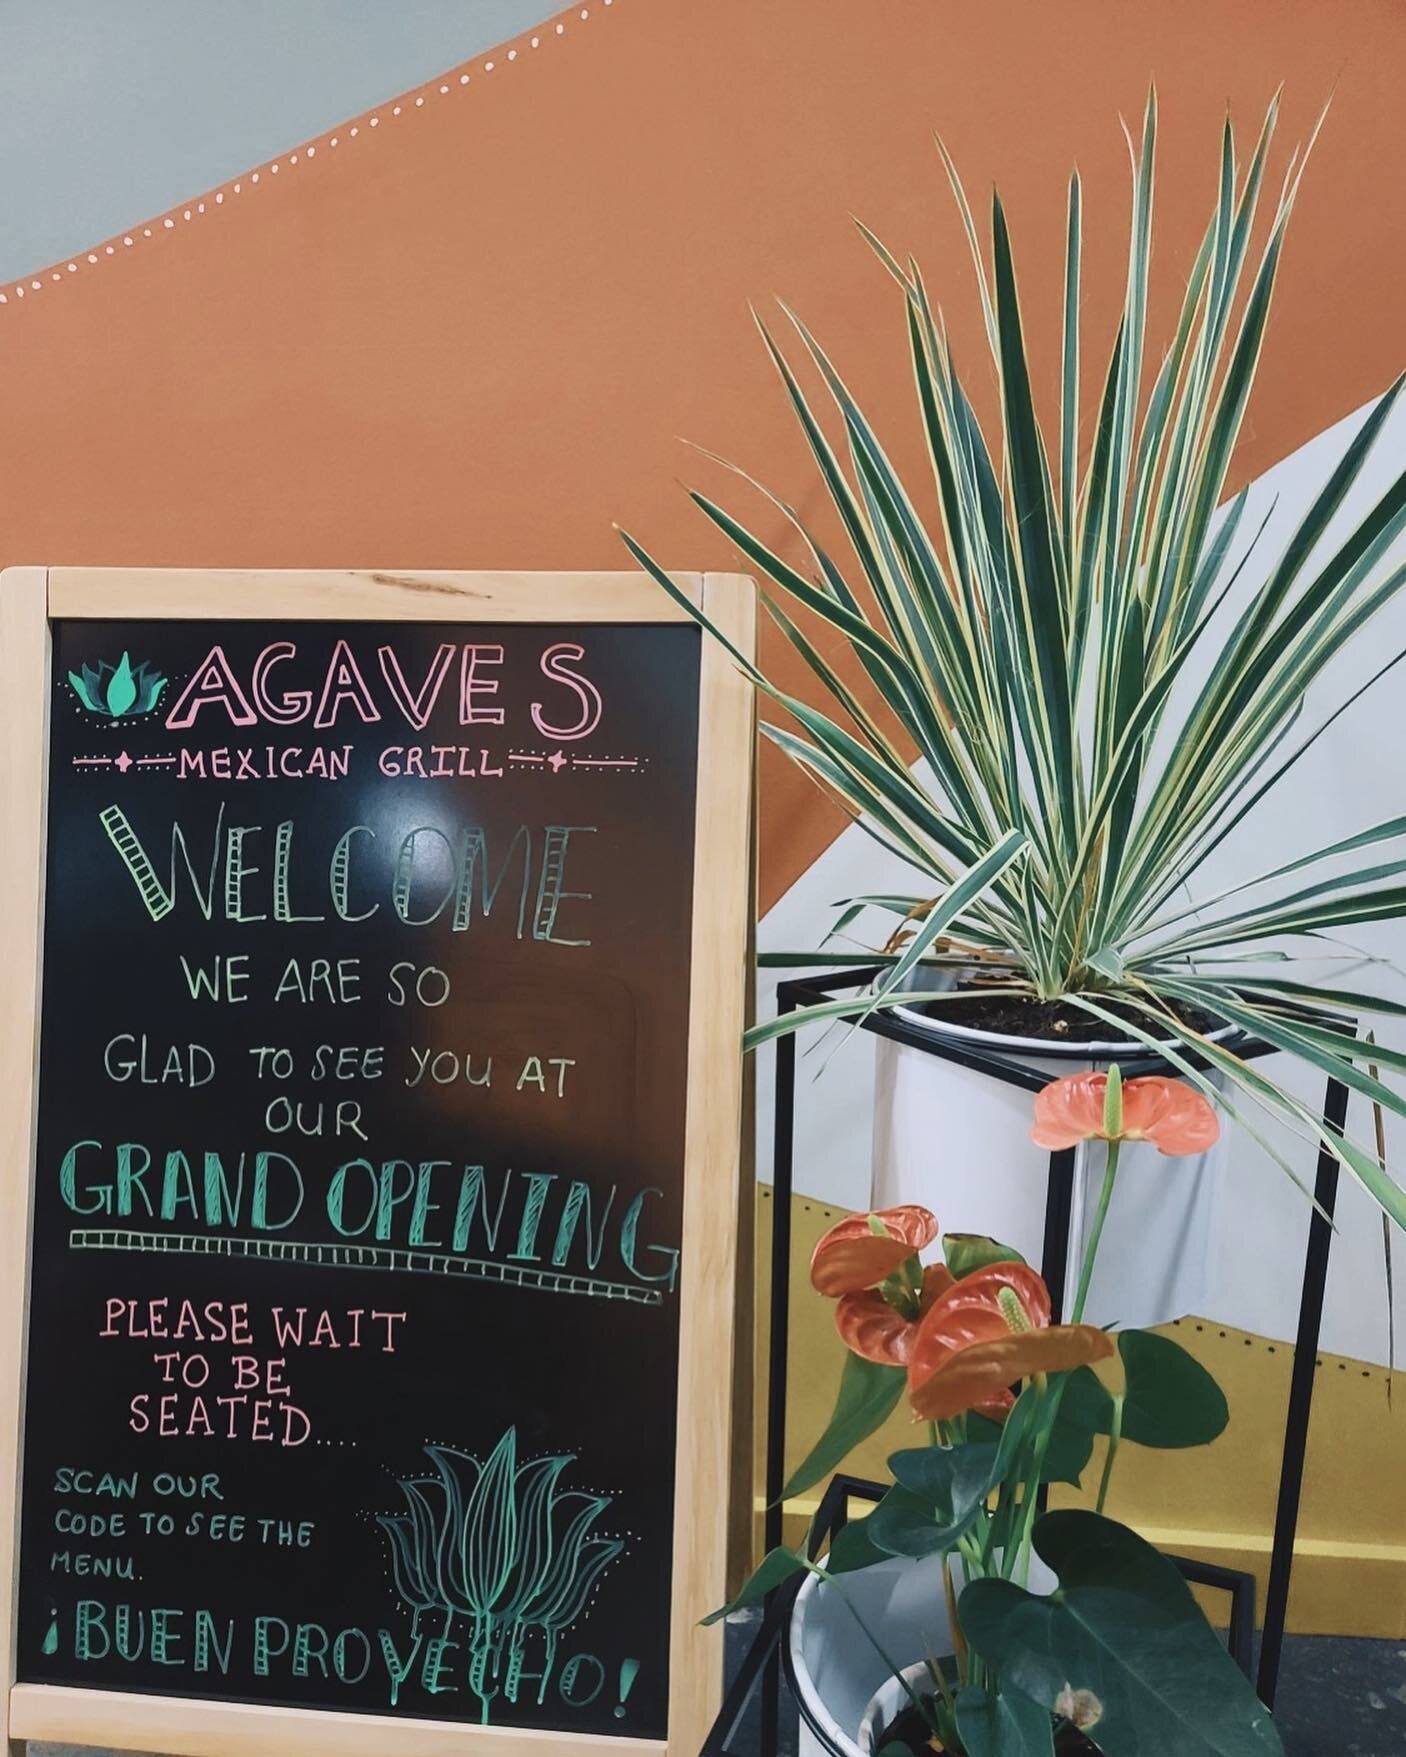 AGAVES
MEXICAN GRILL
WELCOME
WE ARE SO
GLAD TO SEE YOU AT
OUR
GRAND OPENING
PLEASE WAIT
TO BE
SEATED....
SCAN OUR
CODE TO SEE THE
MENU.
¡BUEN PROVECHO!